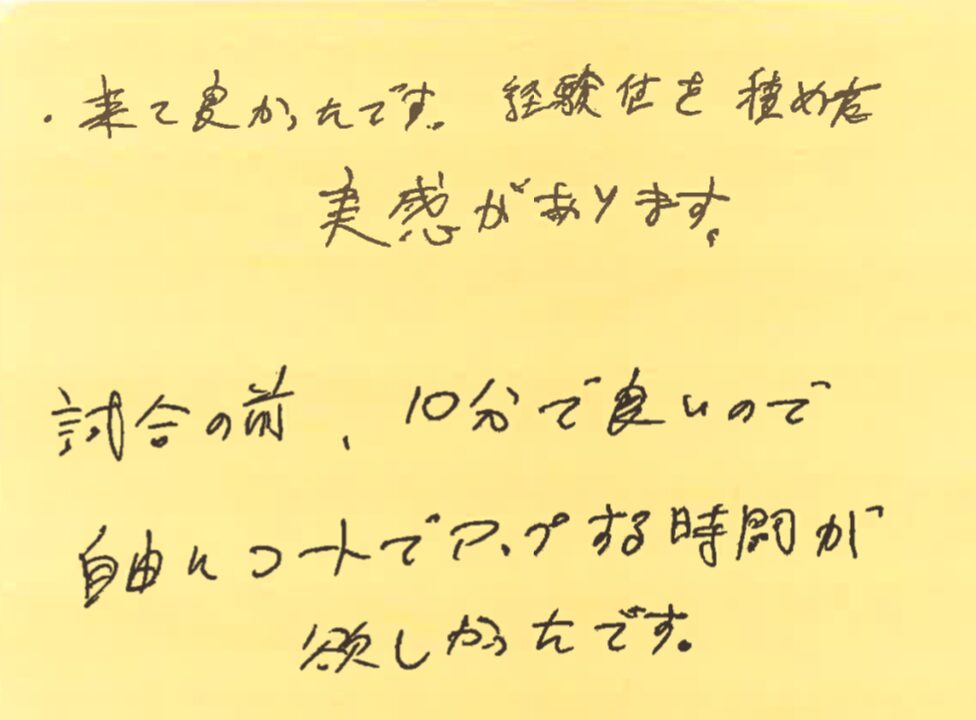 ・来て良かったです。経験値を積めた
実感があります。
試合の前、10分で良いので
自由にコートでアップする時間が
欲しかったです。